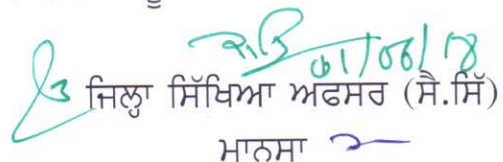 01/06/18
ਜਿਲ੍ਹਾ ਸਿੱਖਿਆ ਅਫਸਰ (ਸੈ.ਸਿੱ)
ਮਾਨਸਾ